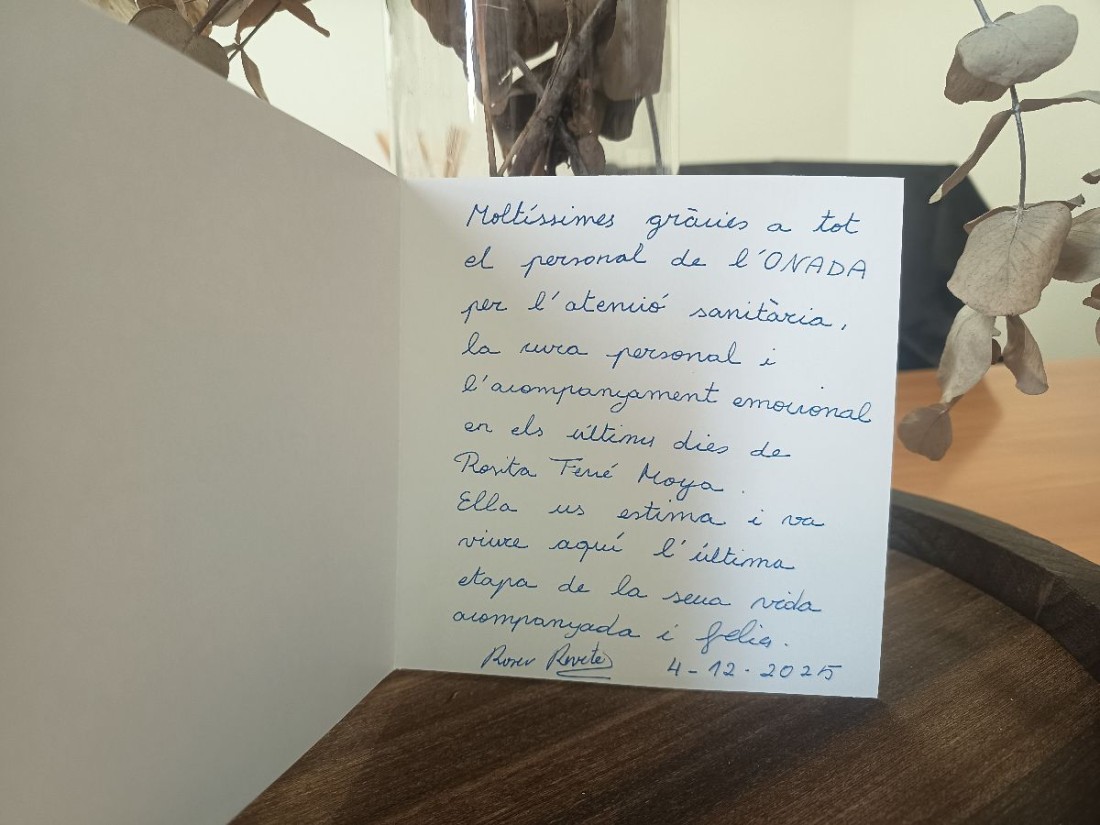 Moltíssimes gràcies a tot
el personal de l'ONADA
per l'atenció sanitària,
la cura personal i
l'acompanyament emocional
en els últims dies de
Rosita Ferré Moya.
Ella us estima i va
viure aquí l'última
etapa de la seua vida
acompanyada i feliç.
Roser 4-12-2025